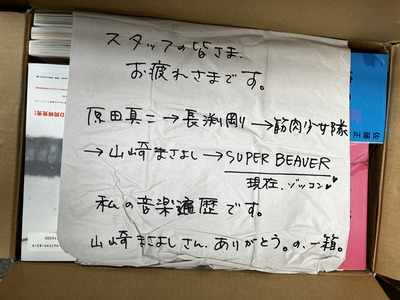 スタッフの皆さま、
お疲れさまです。
原田真二→長渕剛→筋肉少女隊
→山崎まさよし→SUPER BEAVER
現在、ゾッコン♥
私の音楽遍歴です。
山崎まさよしさん、ありがとう。の、一箱。
佐藤正